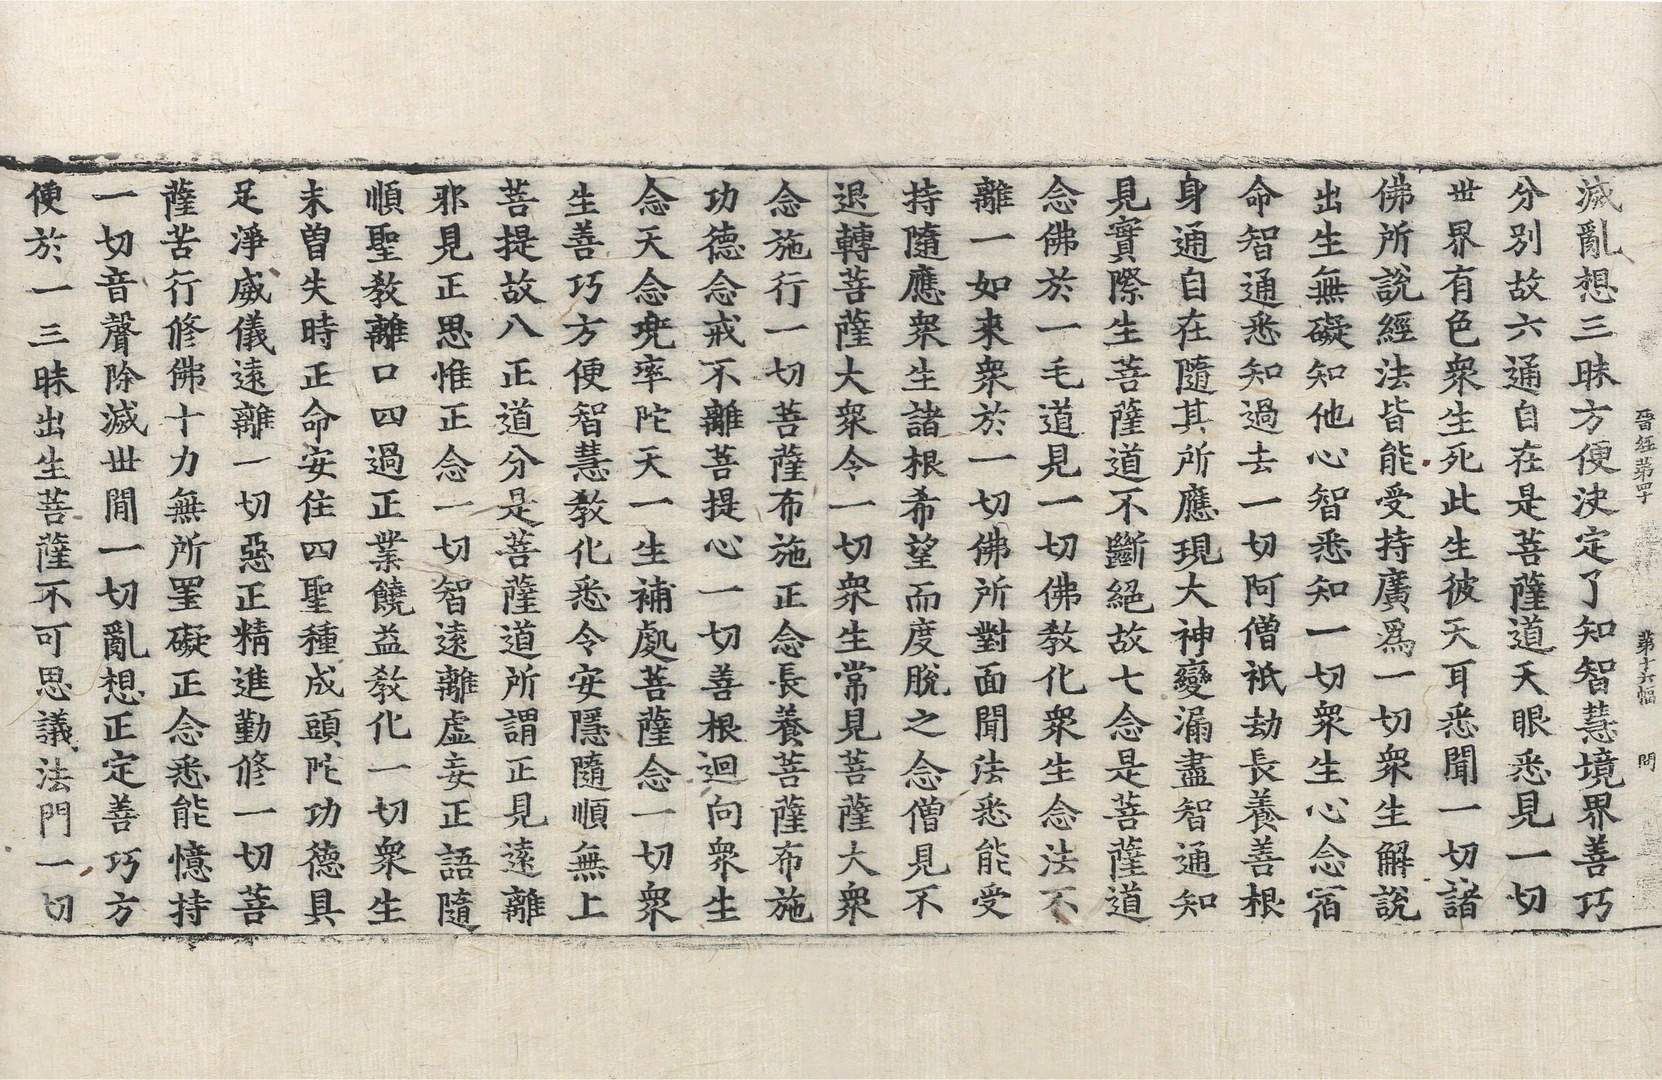 滅亂想三昧方便決定了知智慧境界善巧
晉經第四十 第十六幅 問
分別故六通自在是菩薩道天眼悉見一切
世界有色衆生死此生彼天耳悉聞一切諸
佛所說經法皆能受持廣爲一切衆生解說
出生無礙知他心智悉知一切衆生心念宿
命智通悉知過去一切阿僧祇劫長養善根
身通自在隨其所應現大神變漏盡智通知
見實際生菩薩道不斷絕故七念是菩薩道
念佛於一毛道見一切佛教化衆生念法不
離一如來衆於一切佛所對面聞法悉能受
持隨應衆生諸根希望而度脫之念僧見不
退轉菩薩大衆令一切衆生常見菩薩大衆
念施行一切菩薩布施正念長養菩薩布施
功德念戒不離菩提心一切善根迴向衆生
念天念兜率陀天一生補處菩薩念一切衆
生善巧方便智慧教化悉令安隱隨順無上
菩提故八正道分是菩薩道所謂正見遠離
邪見正思惟正念一切智遠離虛妄正語隨
順聖教離口四過正業饒益教化一切衆生
未曾失時正命安住四聖種成頭陀功德具
足淨威儀遠離一切惡正精進勤修一切菩
薩苦行修佛十力無所罣礙正念悉能憶持
一切音聲除滅世間一切亂想正定善巧方
便於一三昧出生菩薩不可思議法門一切